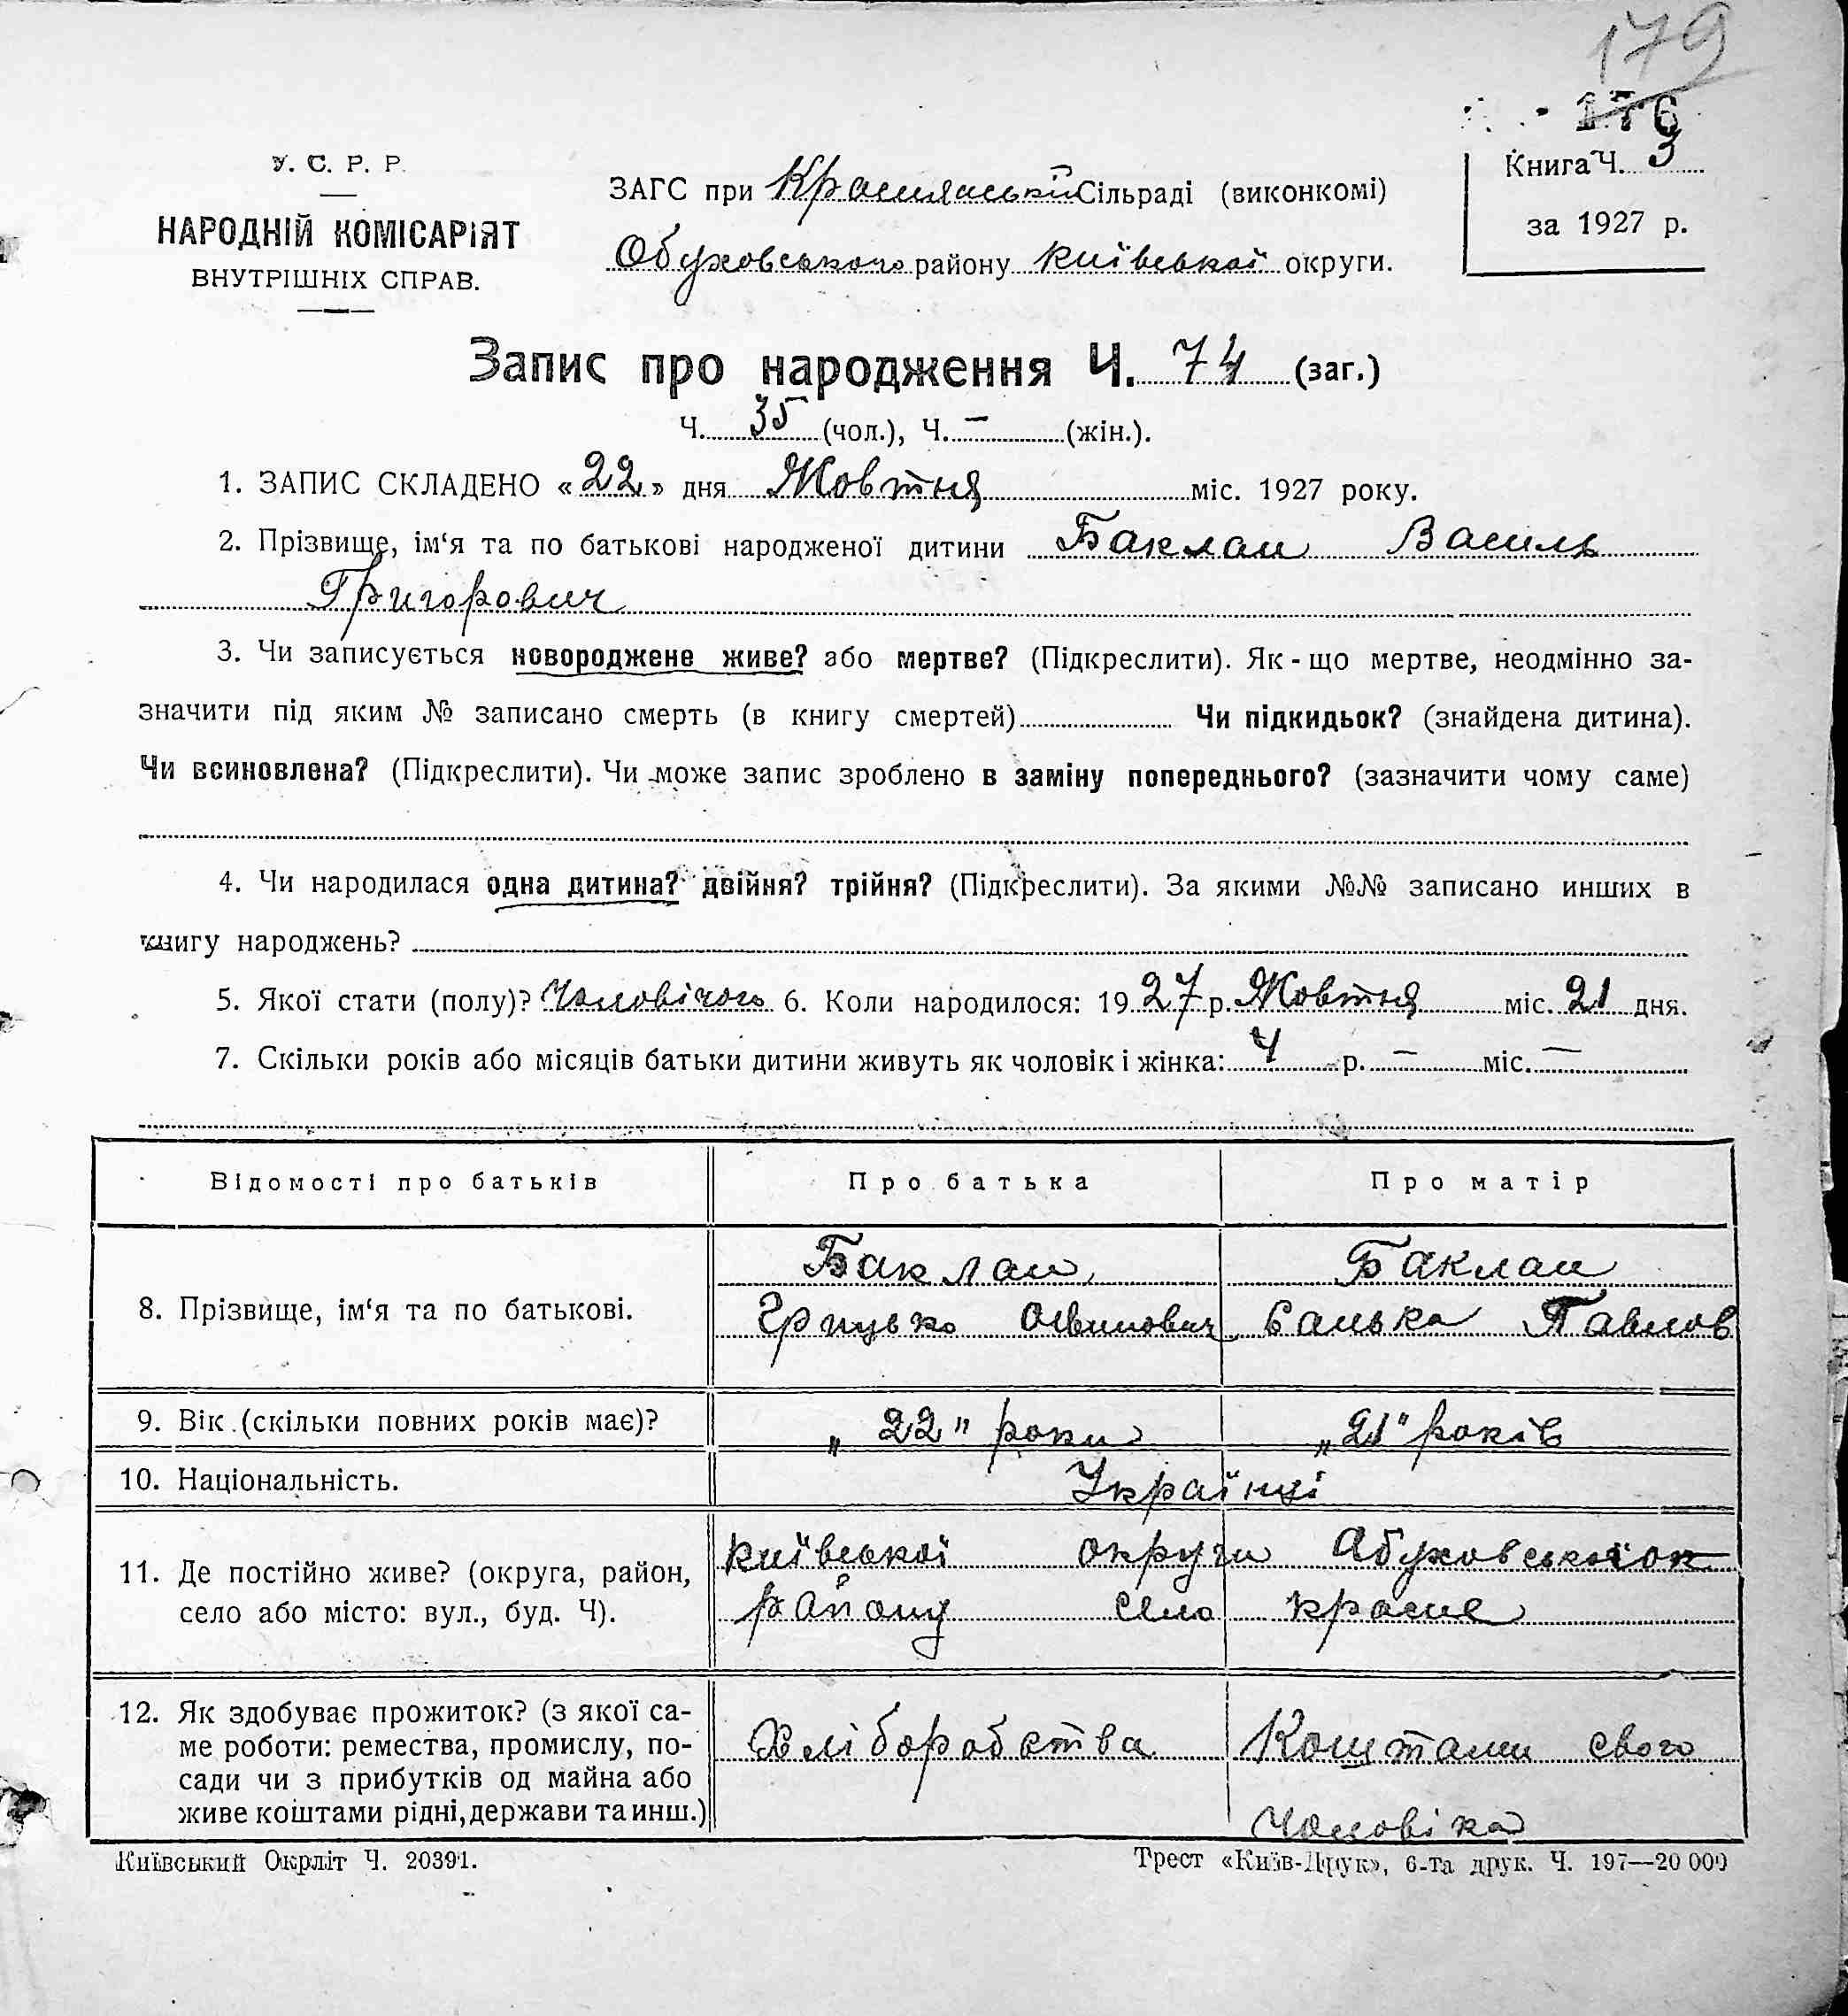 179
176
У. С. Р. Р.
НАРОДНІЙ КОМІСАРІЯТ
ВНУТРІШНІХ СПРАВ.
ЗАГС при Сільраді (виконкомі)
Обуховського району київської округи.
Книга Ч. 3
за 1927 р.
Запис про народження Ч. 74 (заг.)
Ч. 35 (чол.), Ч. — (жін.).
1. ЗАПИС СКЛАДЕНО «22» дня Жовтня міс. 1927 року.
2. Прізвище, ім‘я та по батькові народженої дитини Баклан Василь
Григорович
3. Чи записується новороджене живе? або мертве? (Підкреслити). Як-що мертве, неодмінно за-
значити під яким № записано смерть (в книгу смертей) Чи підкидьок? (знайдена дитина).
Чи всиновлена? (Підкреслити). Чи може запис зроблено в заміну попереднього? (зазначити чому саме)
4. Чи народилася одна дитина? двійня? трійня? (Підкреслити). За якими №№ записано инших в
книгу народжень?
5. Якої стати (полу)? Чоловічого 6. Коли народилося: 1927 р. Жовтня міс. 21 дня.
7. Скільки років або місяців батьки дитини живуть як чоловік і жінка: 4 р. — міс. —
Відомості про батьків Про батька Про матір
8. Прізвище, ім‘я та по батькові.
Баклан Баклан
Грицько Ганька Павлов
9. Вік (скільки повних років має)? „22" роки „21" років
10. Національність. Українці
11. Де постійно живе? (округа, район,
село або місто: вул., буд. Ч).
київської округи Абуховської ок
району село красне
12. Як здобуває прожиток? (з якої са-
ме роботи: ремества, промислу, по-
сади чи з прибутків од майна або
живе коштами рідні, держави та инш.)
Хліборобства Коштами свого
чоловіка
Київський Окрліт Ч. 20391.
Трест «Київ-Друк», 6-та друк. Ч. 197—20 000